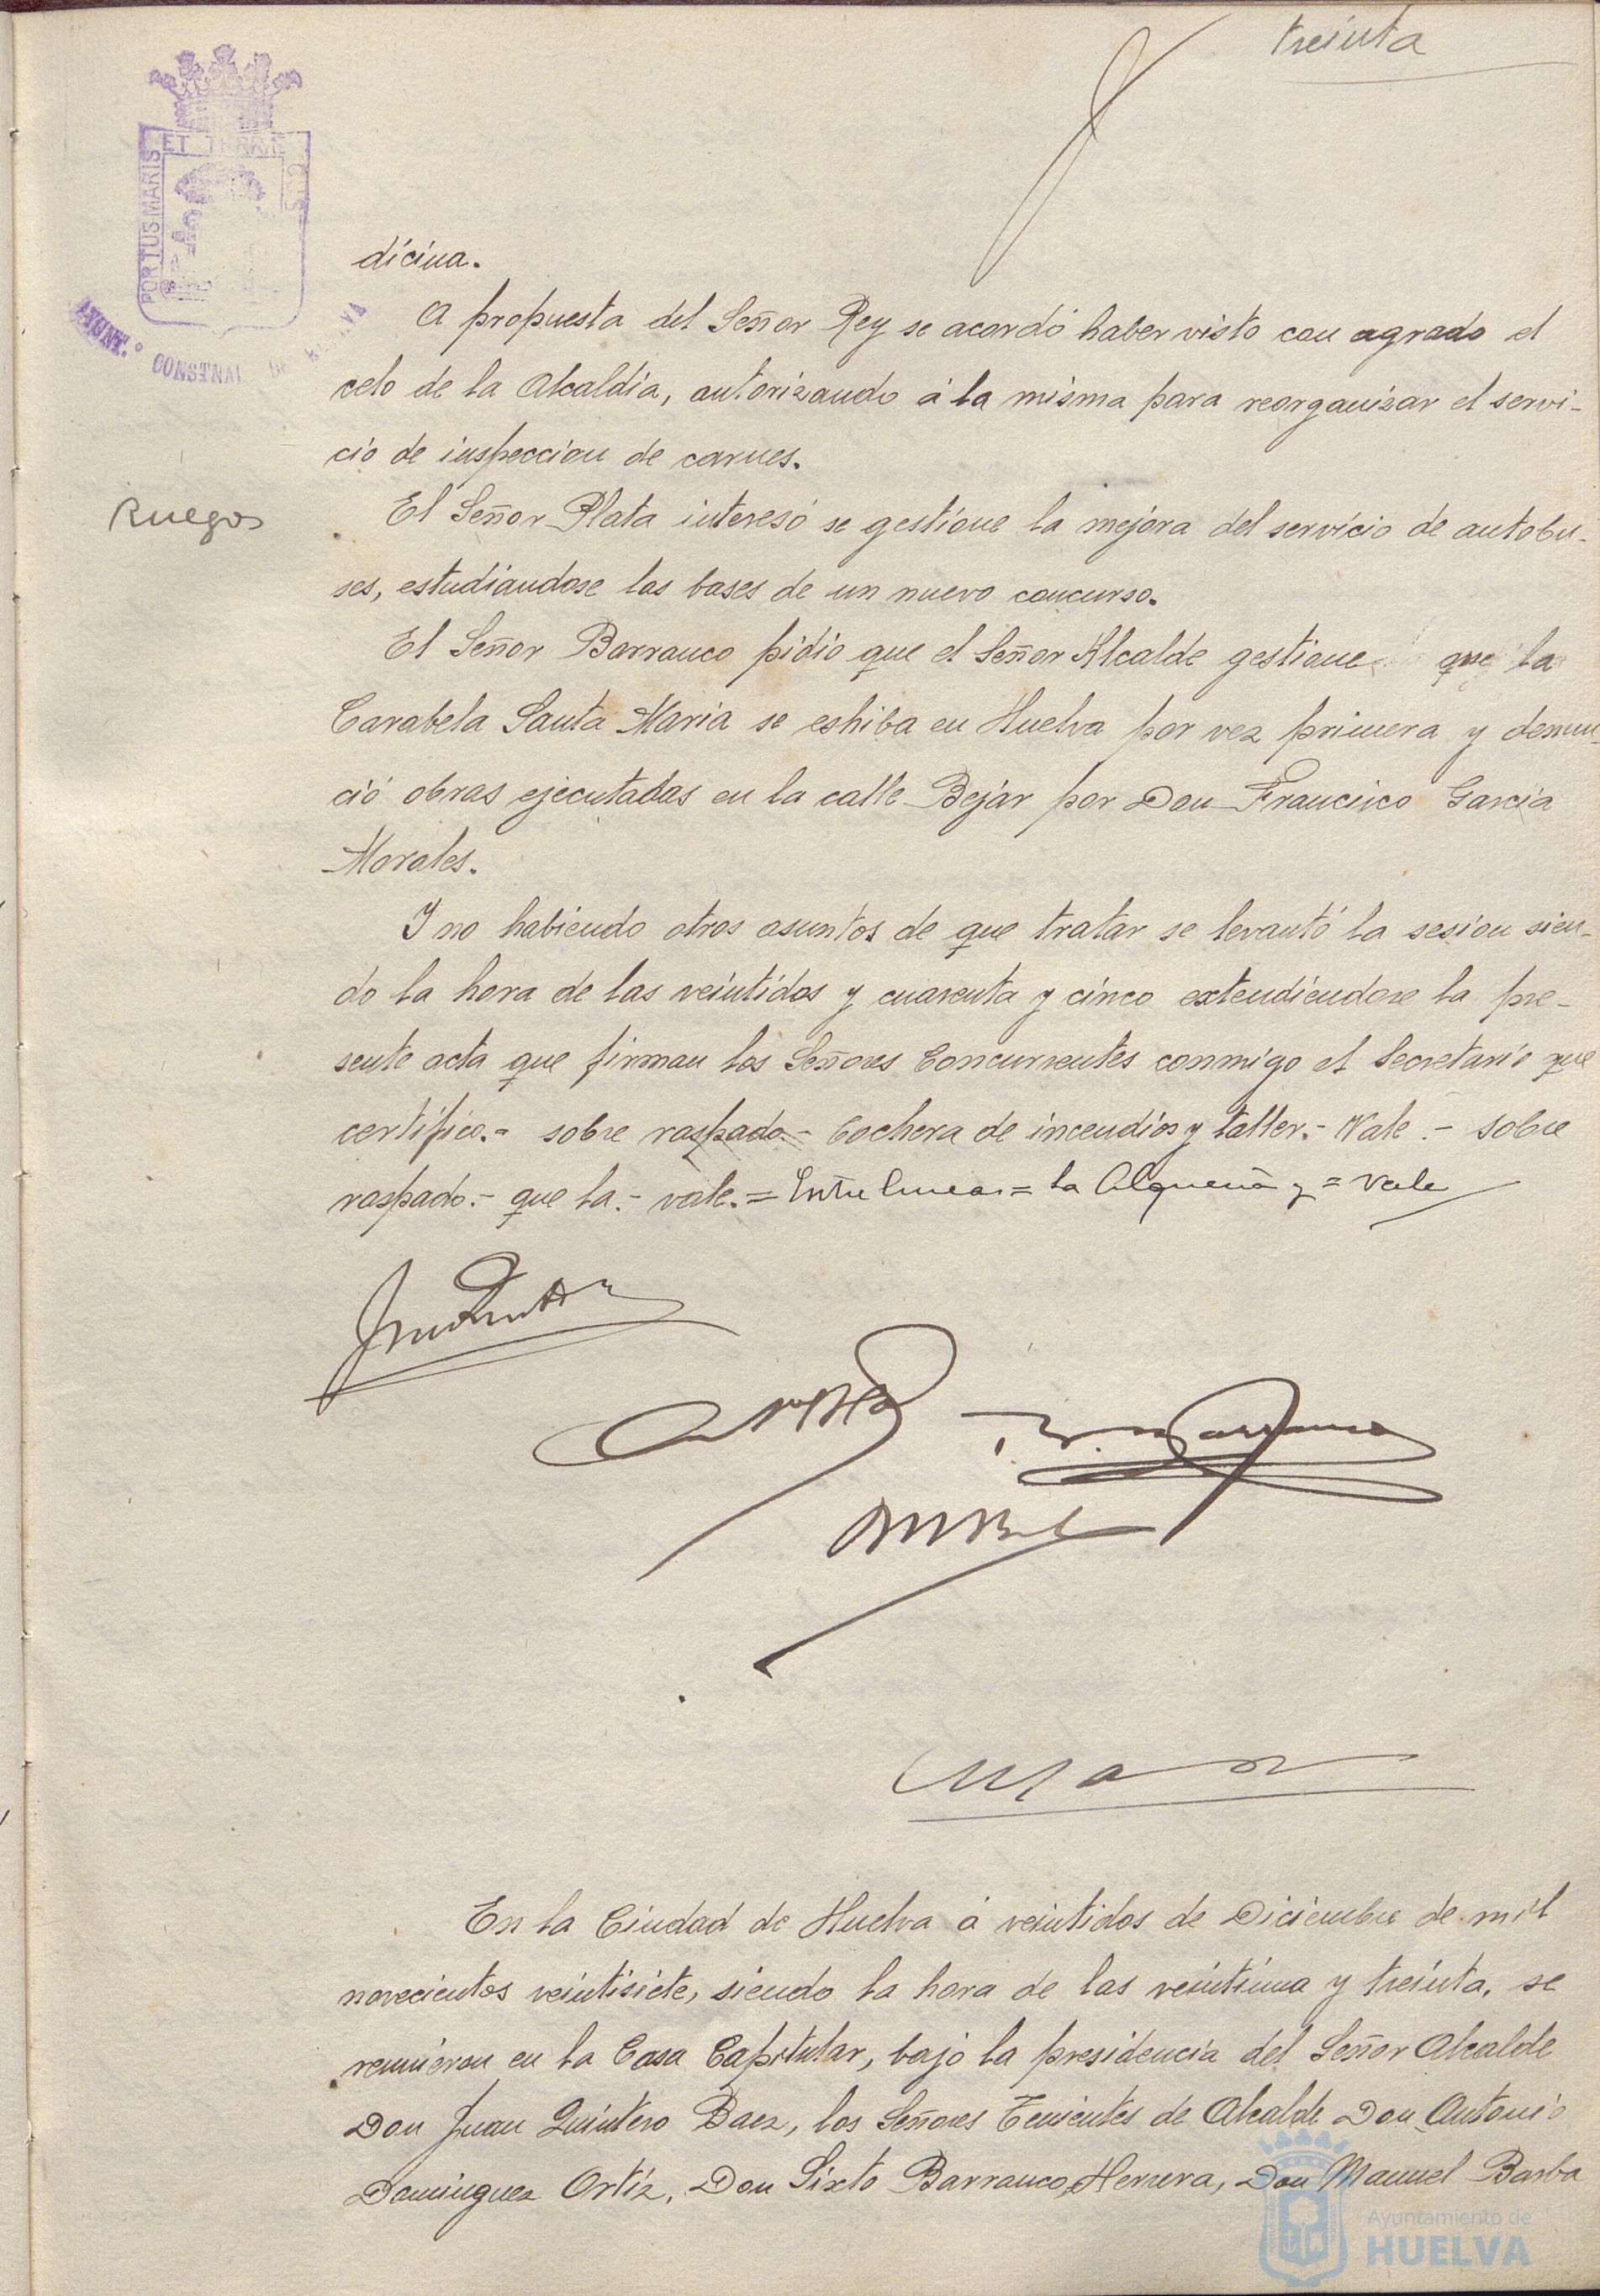 treinta
PORTUS MARIS ET TERRAE CUS
AYUNT.º CONSTNAL DE HUELVA
dicina.
A propuesta del Señor Rey se acordó haber visto con agrado el
celo de la Alcaldia, autorizando á la misma para reorganizar el servi-
cio de inspeccion de carnes.
Ruegos
El Señor Plata interesó se gestione la mejora del servicio de autobu-
ses, estudiandose las bases de un nuevo concurso.
El Señor Barranco pidio que el Señor Alcalde gestione que la
Carabela Santa Maria se exhiba en Huelva por vez primera y denun-
ció obras ejecutadas en la calle Bejar por Don Francisco Garcia
Morales.
Y no habiendo otros asuntos de que tratar se levantó la sesion sien-
do la hora de las veintidos y cuarenta y cinco extendiendose la pre-
sente acta que firman los Señores Concurrentes conmigo el Secretario que
certifico.- sobre raspado.- Cochera de incendios y taller.- Vale.- sobre
raspado.- que la.- vale.= Entre lineas = la Alquería y = Vale
En la Ciudad de Huelva á veintidos de Diciembre de mil
novecientos veintisiete, siendo la hora de las veintiuna y treinta, se
reunieron en la Casa Capitular, bajo la presidencia del Señor Alcalde
Don Juan Quintero Baez, los Señores Tenientes de Alcalde Don Antonio
Dominguez Ortiz, Don Sixto Barranco Herrera, Don Manuel Barba
Ayuntamiento de
HUELVA